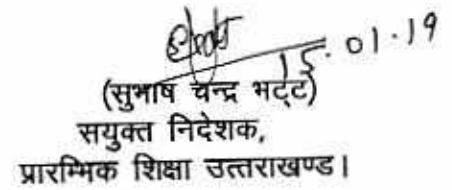 15.01.19
(सुभाष चन्द्र भट्ट)
सयुक्त निदेशक,
प्रारम्भिक शिक्षा उत्तराखण्ड।